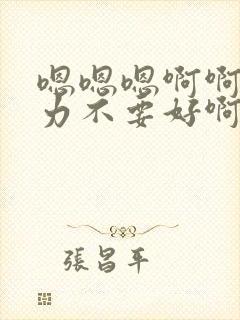 嗯嗯嗯啊啊
力不要好啊
張昌平